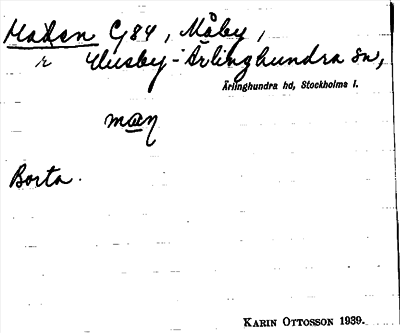 Maden G84, Måby,
r Husby-Ärlinghundra sn,
Ärlinghundra hd, Stockholms l.
man
Borta.
KARIN OTTOSSON 1939.